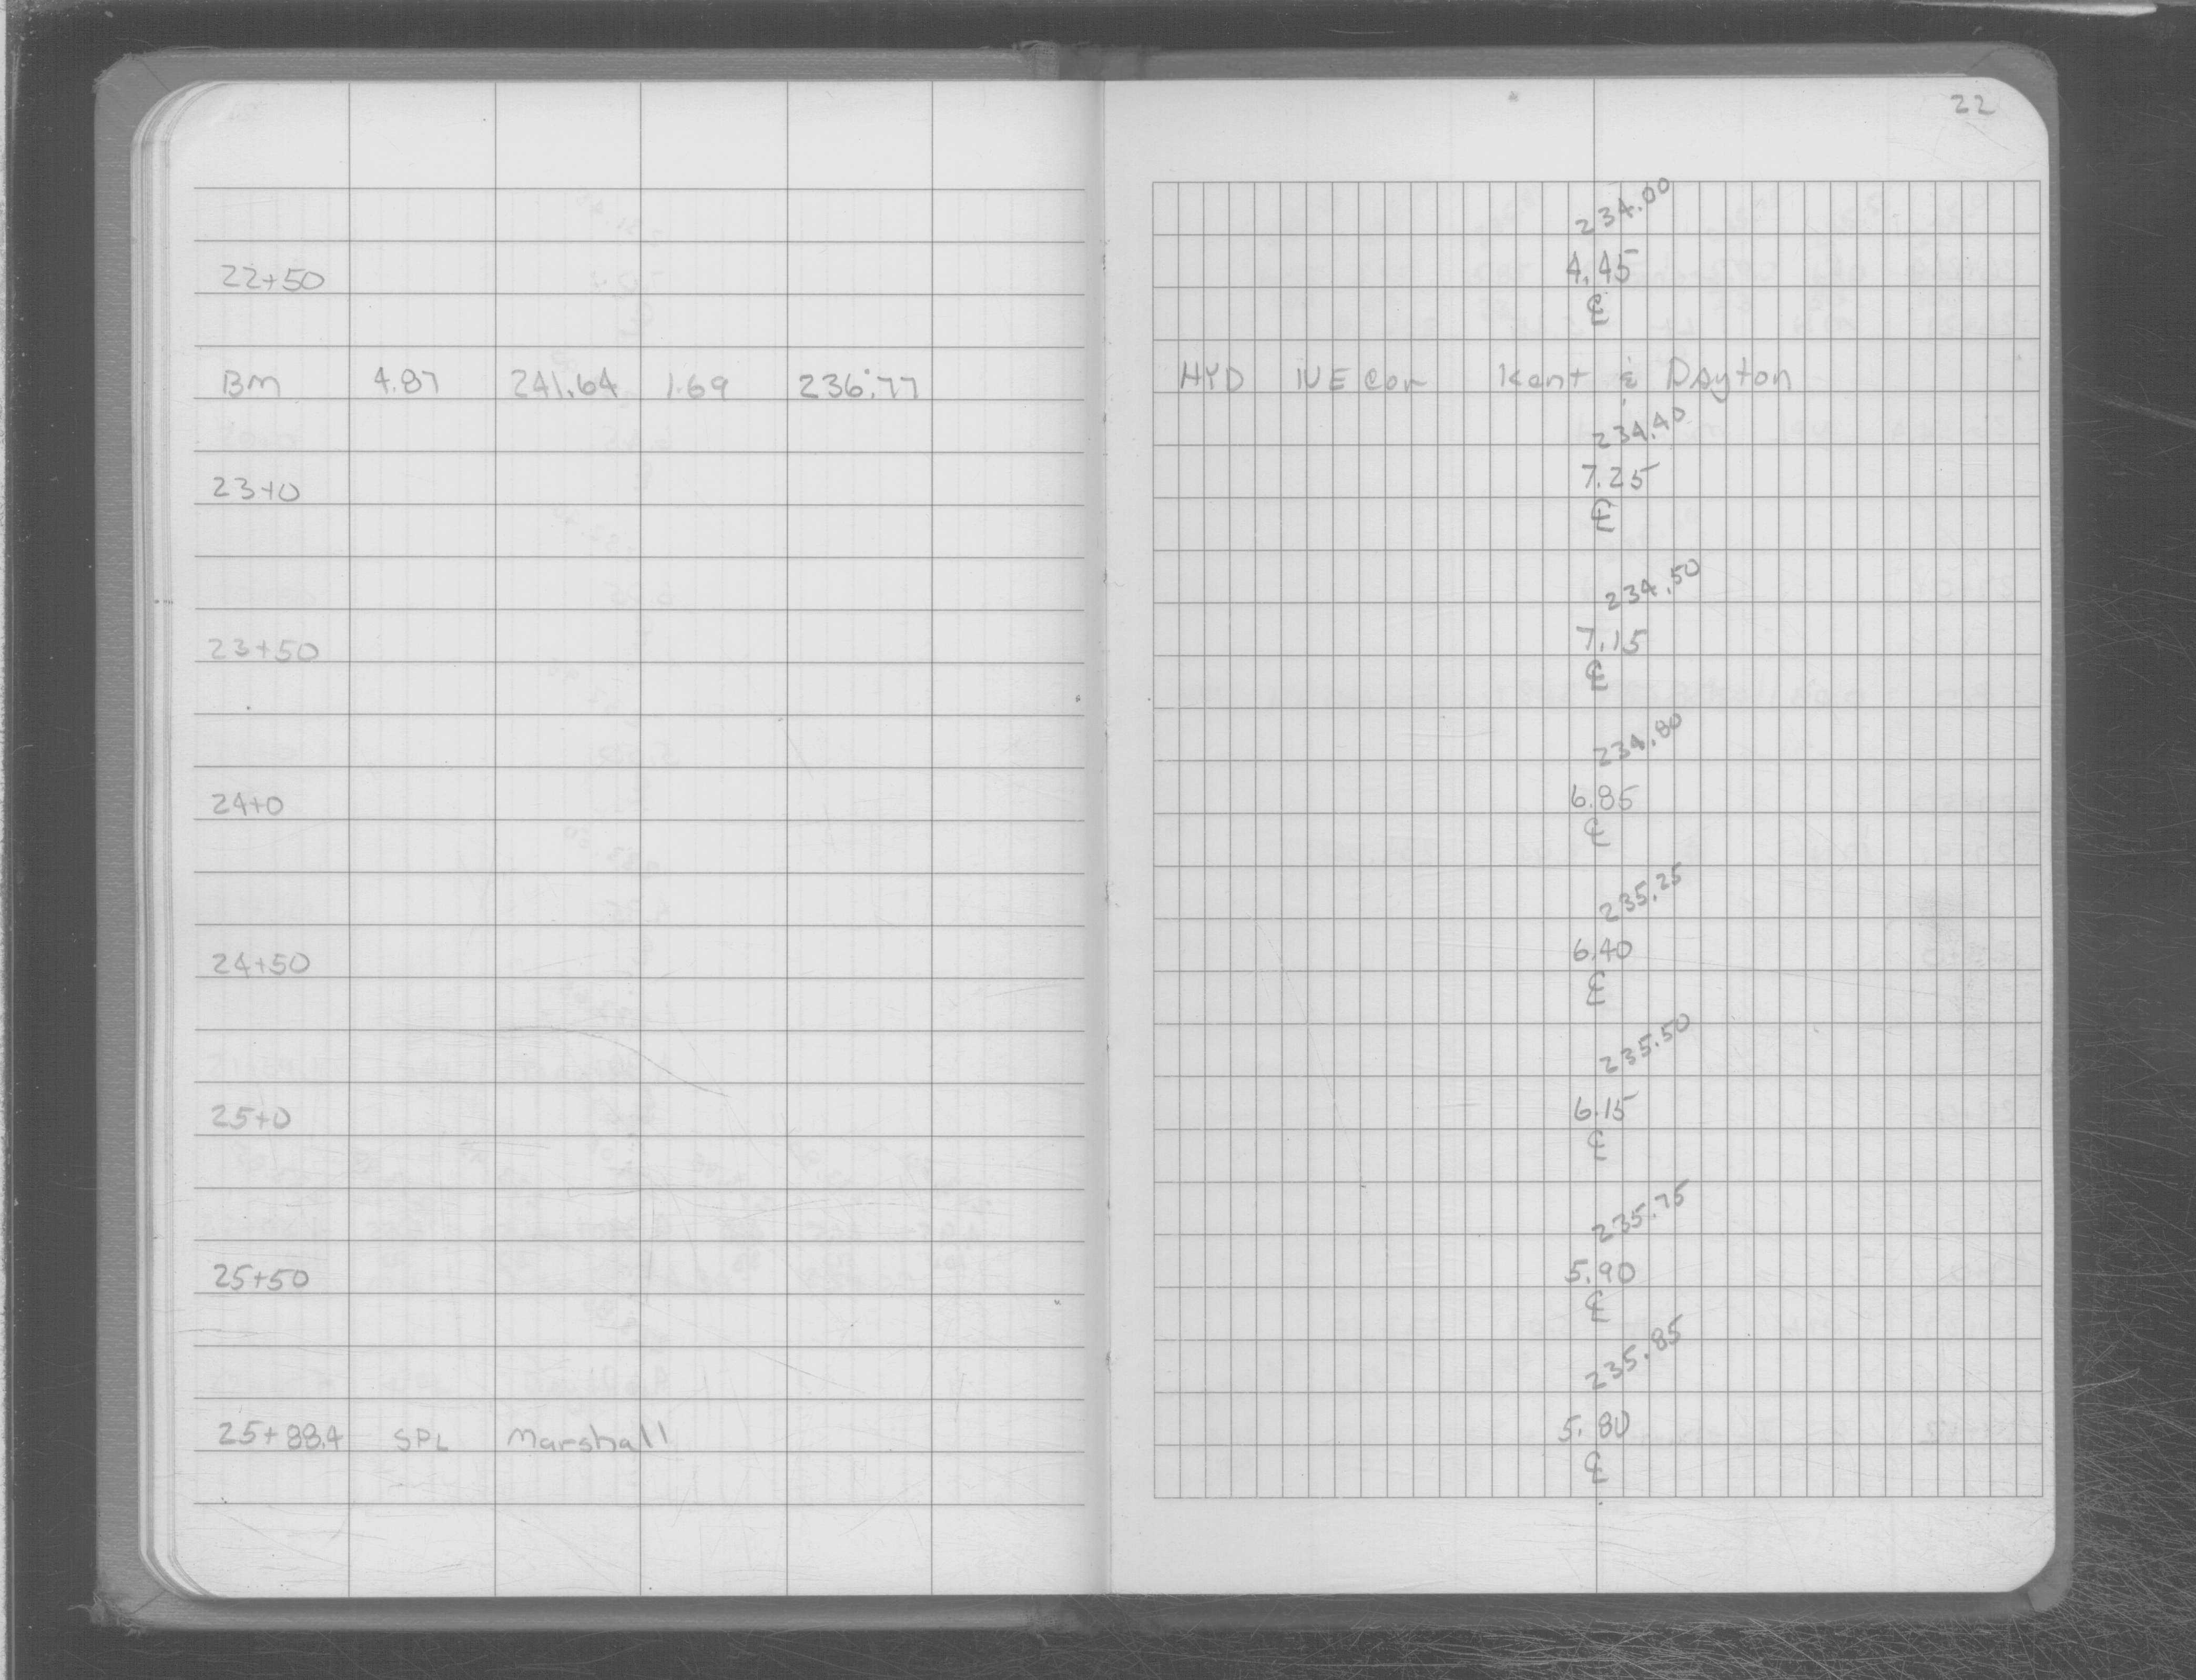 22
234.00
22+50 4.45
℄
BM 4.87 241.64 1.69 236.77 HYD NE Cor Kent & Dayton
234.40
23+0 7.25
℄
234.50
23+50 7.15
℄
234.80
24+0 6.85
℄
235.25
24+50 6.40
℄
235.50
25+0 6.15
℄
235.75
25+50 5.90
℄
235.85
25+88.4 SPL Marshall 5.80
℄